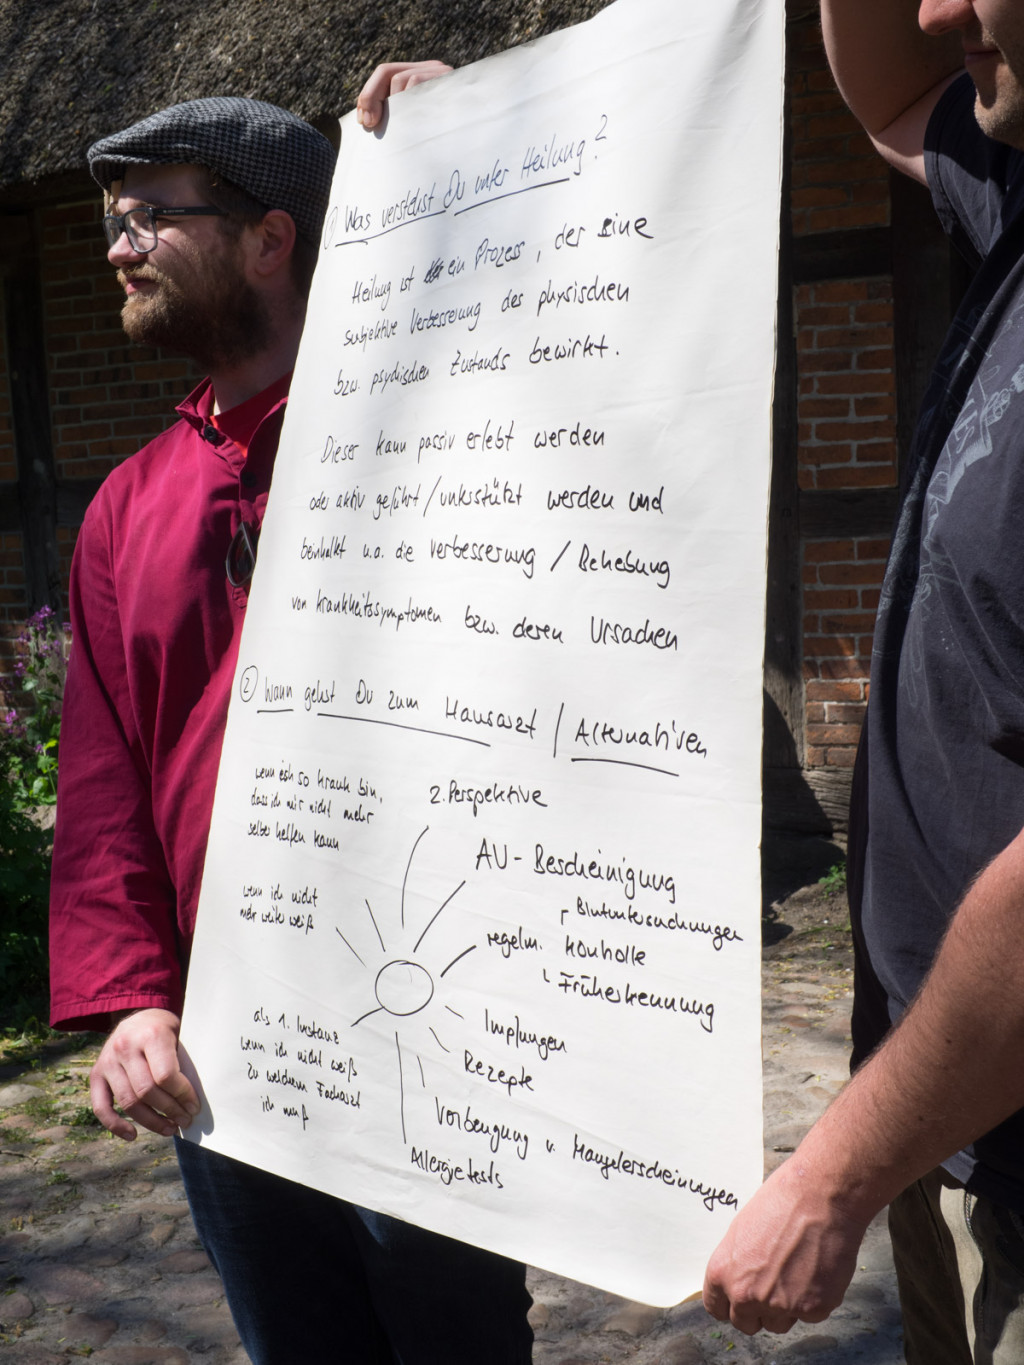 ① Was verstehst Du unter Heilung?
Heilung ist ein Prozess, der eine
subjektive Verbesserung des physischen
bzw. psychischen Zustands bewirkt.
Dieser kann passiv erlebt werden
oder aktiv geführt/unterstützt werden und
beinhaltet u.a. die Verbesserung / Behebung
von Krankheitssymptomen bzw. deren Ursachen
② Wann gehst Du zum Hausarzt / Alternativen
wenn ich so krank bin,
dass ich mir nicht mehr
selber helfen kann
2. Perspektive
AU-Bescheinigung
wenn ich nicht
mehr weiter weiß
Blutuntersuchungen
regelm. Kontrolle
Früherkennung
als 1. Instanz
wenn ich nicht weiß
zu welchem Facharzt
ich muß
Impfungen
Rezepte
Vorbeugung v. Mangelerscheinungen
Allergietests